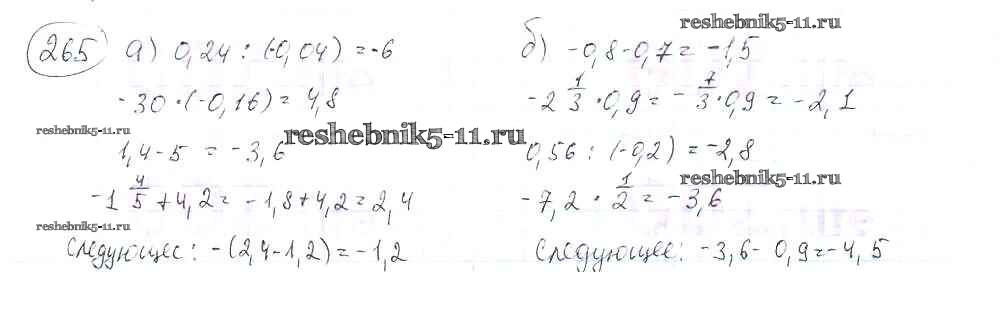 reshebnik5-11.ru
265 а) 0,24 : (-0,04) = -6
б) -0,8-0,7 = -1,5
-30 · (-0,16) = 4,8
-2 1/3 · 0,9 = - 7/3 · 0,9 = -2,1
reshebnik5-11.ru
reshebnik5-11.ru
1,4-5 = -3,6
0,56 : (-0,2) = -2,8
reshebnik5-11.ru
-1 4/5 + 4,2 = -1,8+4,2 = 2,4
-7,2 · 1/2 = -3,6
reshebnik5-11.ru
Следующее: -(2,4-1,2) = -1,2
Следующее: -3,6- 0,9 = -4,5